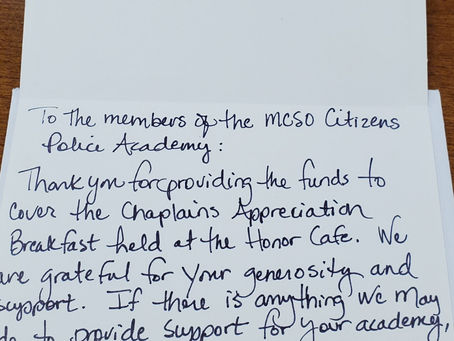 To the members of the MCSO Citizens
Police Academy:
Thank you for providing the funds to
cover the Chaplains Appreciation
Breakfast held at the Honor Cafe. We
are grateful for your generosity and
support. If there is anything we may
do to provide support for your academy,